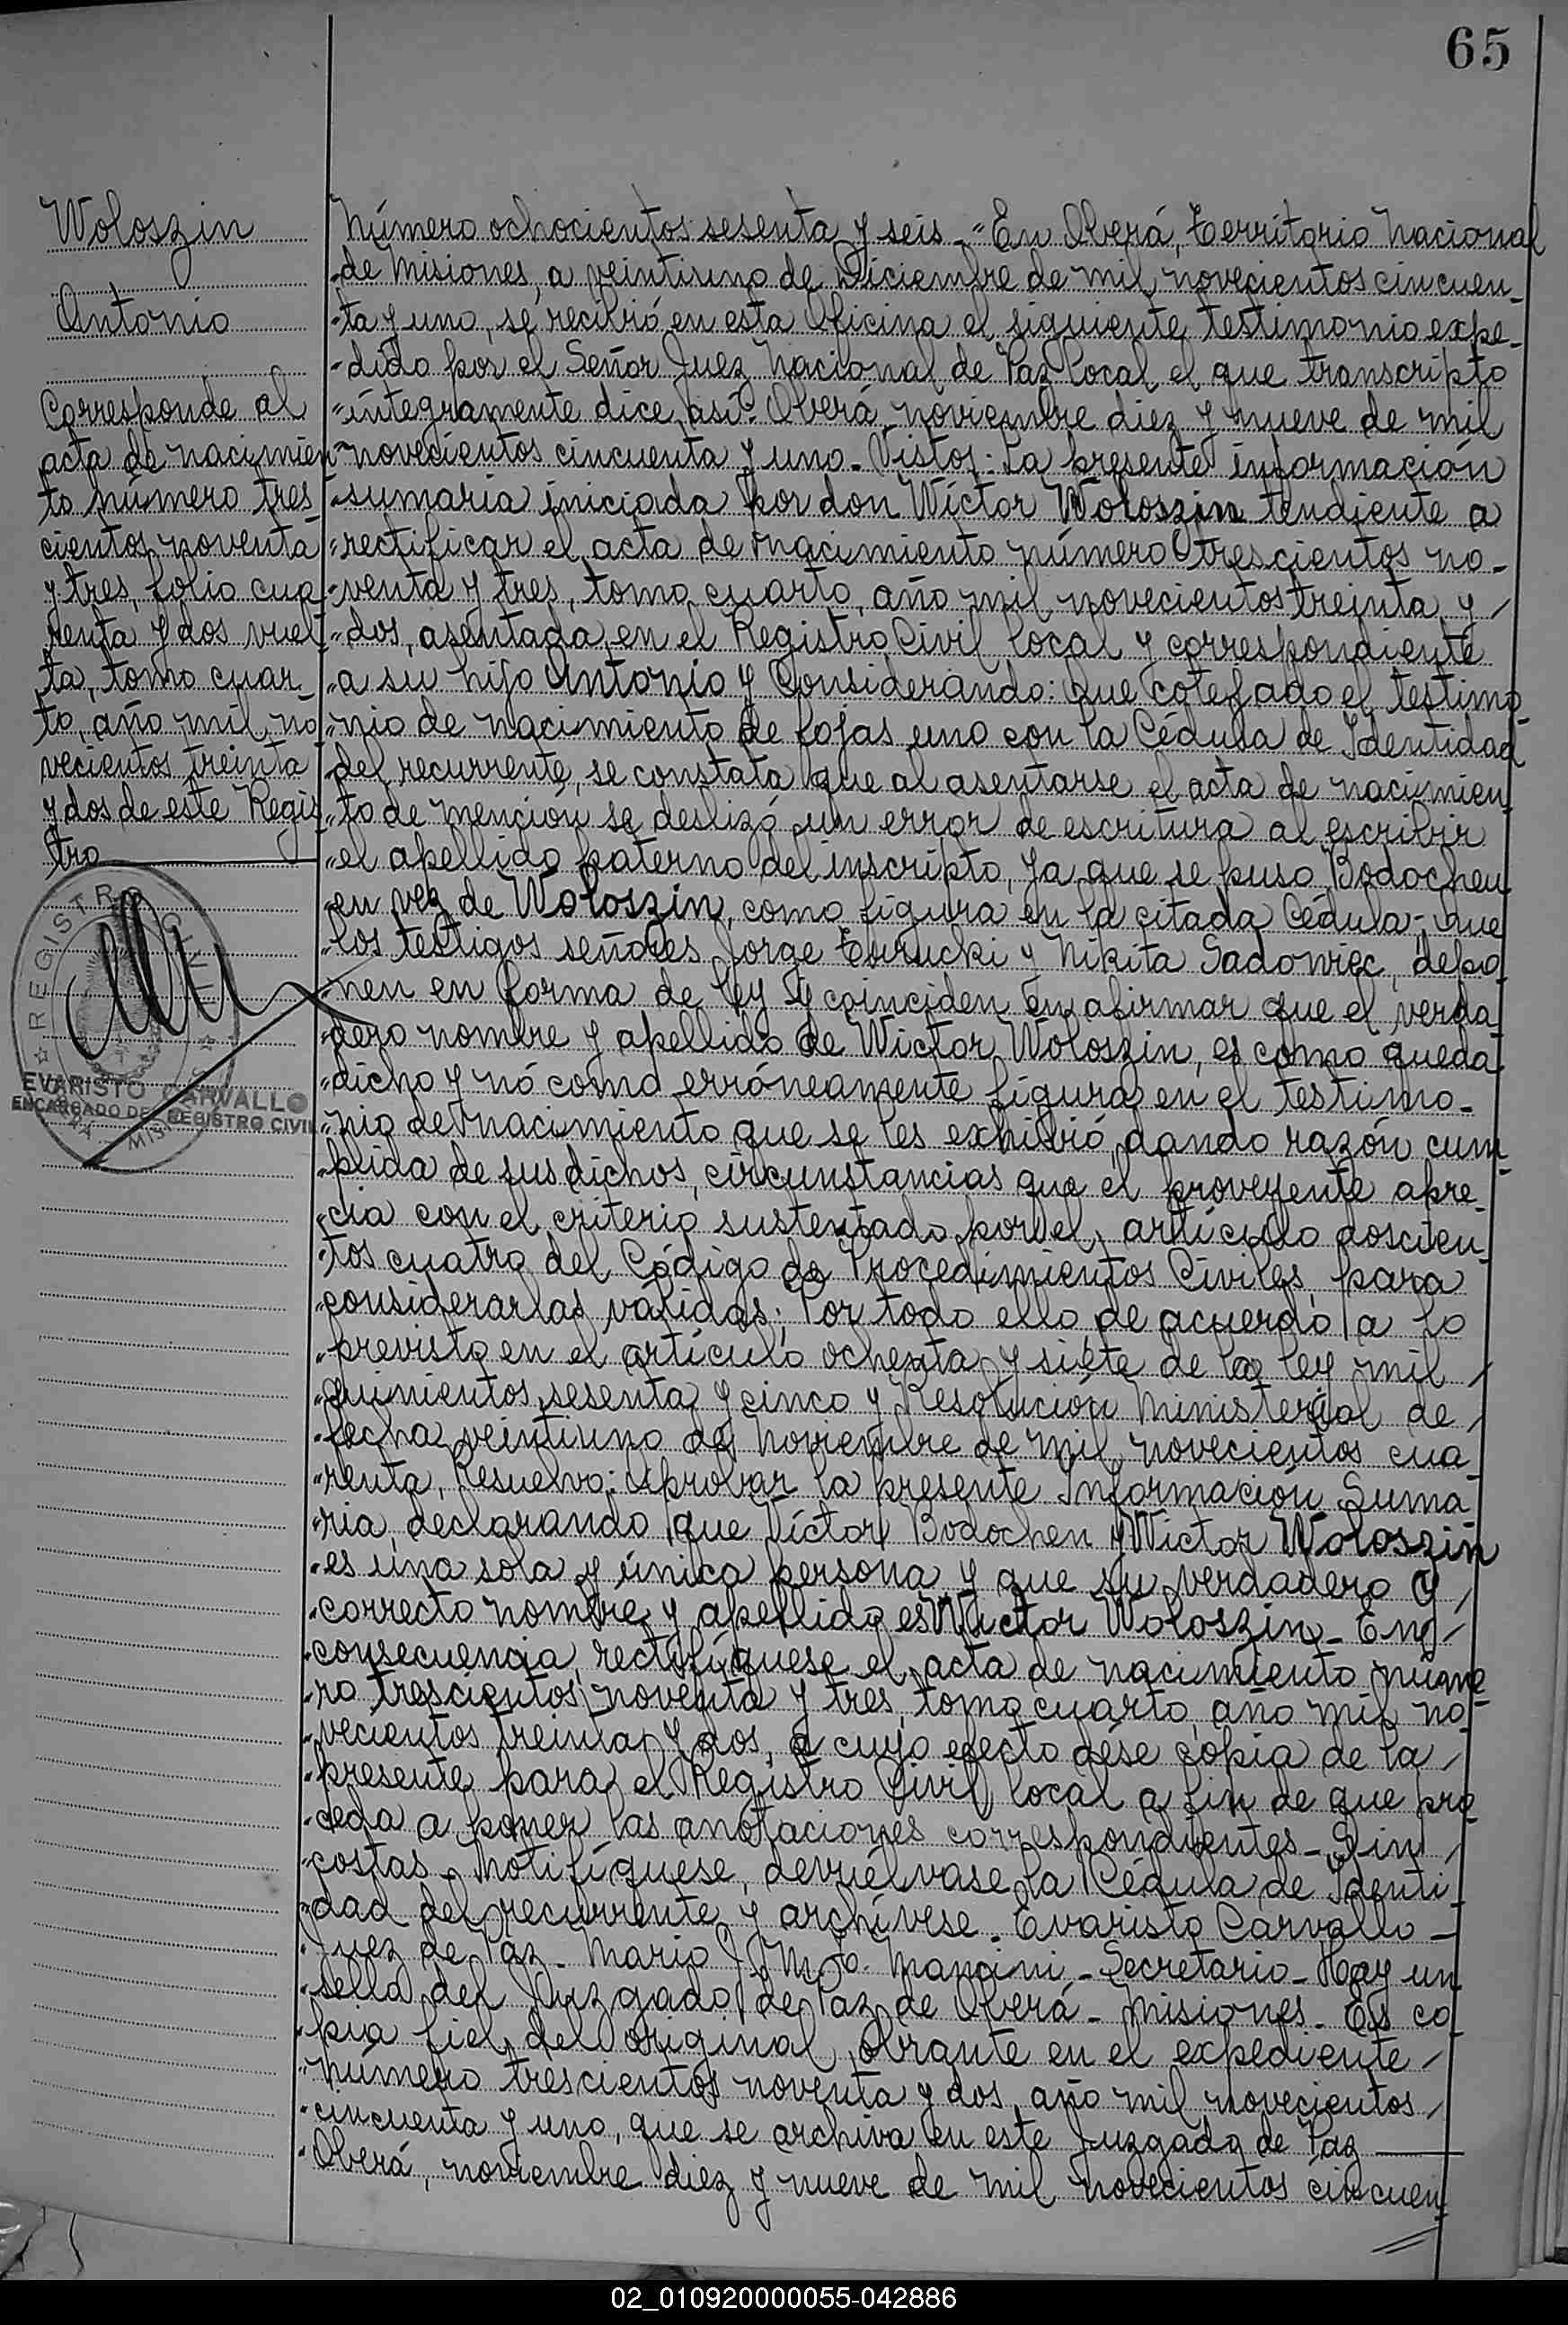 65
Woloszin
Antonio
Corresponde al
acta de nacimien
to número tres-
cientos noventa
y tres, folio cua
renta y dos vuel
ta, tomo cuar-
to, año mil no
vecientos treinta
y dos de este Regis
tro
REGISTRO CIVIL
EVARISTO CARVALLO
ENCARGADO DEL REGISTRO CIVIL
Número ochocientos sesenta y seis - "En Oberá, Territorio Nacional
"de Misiones, a veintiuno de Diciembre de mil novecientos cincuen-
"ta y uno, se recibió en esta Oficina el siguiente testimonio expe-
"dido por el Señor Juez Nacional de Paz local el que transcripto
"íntegramente dice así: Oberá, noviembre diez y nueve de mil
"novecientos cincuenta y uno - Vistos: La presente información
"sumaria iniciada por don Wictor Woloszin tendiente a
"rectificar el acta de nacimiento número trescientos no-
"venta y tres, tomo cuarto, año mil novecientos treinta y /
"dos, asentada en el Registro Civil local y correspondiente
"a su hijo Antonio y Considerando: Que cotejado el testimo-
"nio de nacimiento de fojas uno con la Cédula de Identidad
"del recurrente, se constata que al asentarse el acta de nacimien
"to de mención se deslizó un error de escritura al escribir
"el apellido paterno del inscripto, ya que se puso Bodochen
"en vez de Woloszin, como figura en la citada Cédula; que
"los testigos señores Jorge Eurucki y Nikita Sadowiec, depo
"nen en forma de ley y coinciden en afirmar que el verda
"dero nombre y apellido de Wictor Woloszin, es como queda
"dicho y nó como erróneamente figura en el testimo-
"nio de nacimiento que se les exhibió, dando razón cum-
"plida de sus dichos, circunstancias que el proveyente apre-
"cia con el criterio sustentado por el artículo doscien-
"tos cuatro del Código de Procedimientos Civiles, para
"considerarlas válidas; Por todo ello, de acuerdo a lo
"previsto en el artículo ochenta y siete de la ley mil /
"quinientos sesenta y cinco y Resolución Ministerial de /
"fecha veintiuno de Noviembre de mil novecientos cua-
"renta, Resuelvo: Aprobar la presente Información Suma
"ria, declarando que Víctor Bodochen y Wictor Woloszin
"es una sola y única persona y que su verdadero y /
"correcto nombre y apellido es Wictor Woloszin - En /
"consecuencia, rectifíquese el acta de nacimiento núme-
"ro trescientos noventa y tres, tomo cuarto, año mil no-
"vecientos treinta y dos, a cuyo efecto dése copia de la /
"presente para el Registro Civil local a fin de que pro
"ceda a poner las anotaciones correspondientes - Sin /
"costas - Notifíquese, devuélvase la Cédula de Identi-
"dad del recurrente y archívese - Evaristo Carvallo -
"Juez de Paz - Mario J. M. Mancini - Secretario - Hay un
"sello del Juzgado de Paz de Oberá - Misiones - Es co
"pia fiel del original obrante en el expediente /
"número trescientos noventa y dos, año mil novecientos /
"cincuenta y uno, que se archiva en este Juzgado de Paz
"Oberá, noviembre diez y nueve de mil novecientos cincuen
02_010920000055-042886